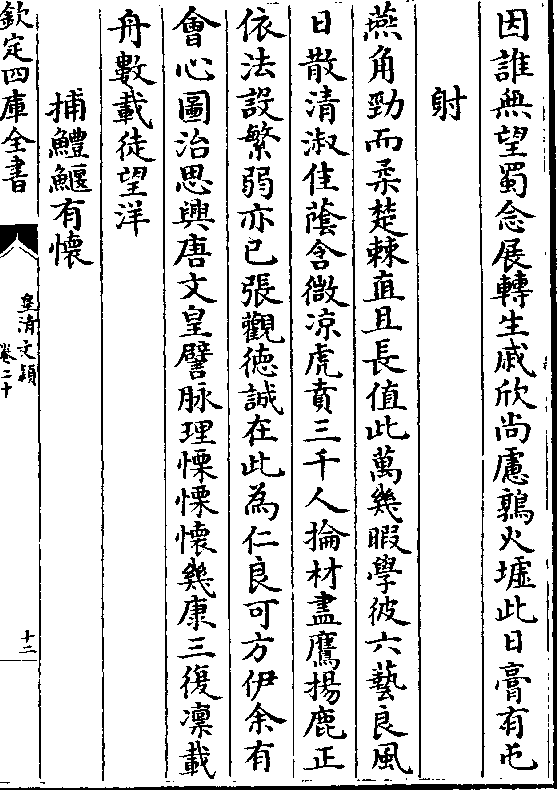 因誰無望蜀念展轉生戚欣尚慮鶉火墟此日膏有屯
射
燕角勁而柔楚棘直且長值此萬幾暇學彼六藝良風
日散清淑佳蔭含微凉虎賁三千人掄材盡鷹揚鹿正
依法設繁弱亦已張觀徳誠在此為仁良可方伊余有
會心圖治思興唐文皇譬脉理慄慄懷幾康三復凛載
舟數載徒望洋
捕鱧鰋有懷
欽定四庫全書
皇清文穎
卷二十
十二